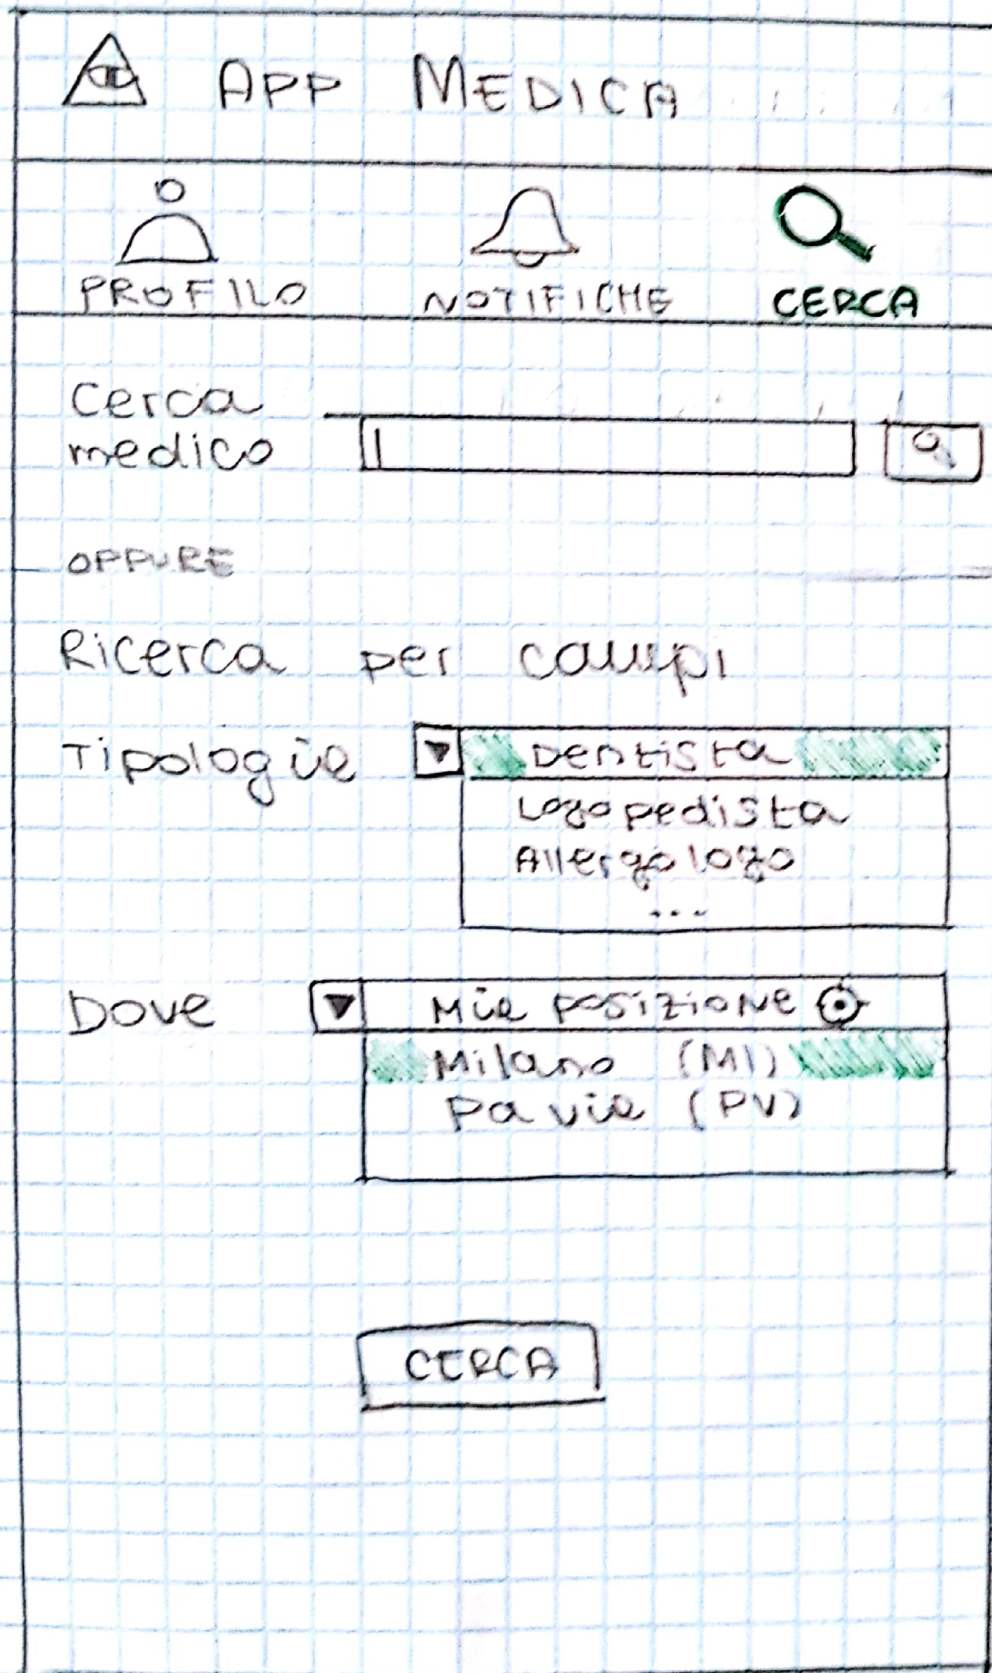 APP MEDICA
PROFILO NOTIFICHE CERCA
Cerca
medico
OPPURE
Ricerca per campi
Tipologia Dentista
Logopedista
Allergologo
...
Dove Mia posizione
Milano (MI)
Pavia (PV)
CERCA